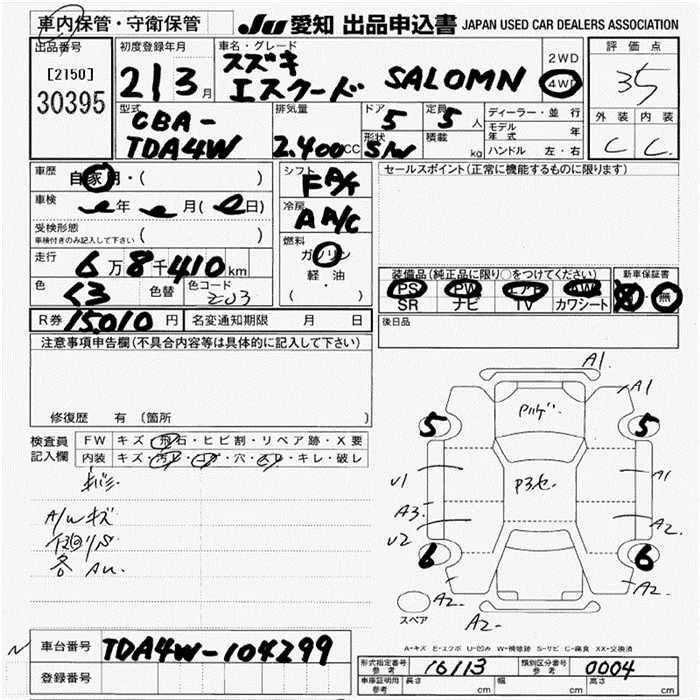 車内保管・守衛保管
JU 愛知 出品申込書 JAPAN USED CAR DEALERS ASSOCIATION
出品番号
[2150]
30395
初度登録年月
21 3 月
車名・グレード
スズキ
エスクード SALOMN
2WD
4WD
評価点
35
外装 内装
C C
型式
CBA-
TDA4W
排気量
2.400 CC
ドア
5
定員
5 人
形状
S/W
積載
kg
ディーラー・並行
モデル年式 年
ハンドル 左・右
車歴
自家用・( )
車検
年 月( 日)
受検形態
車検付きのみ記入して下さい ( )
走行
6万8千410km
色
クロ
色替
色コード
ZJ3
シフト
FA/T
冷房
A A/C
燃料
ガソリン
軽・油
( ・ )
セールスポイント(正常に機能するものに限ります)
装備品(純正品に限り○をつけてください)
PS PW エアB AW
SR ナビ TV カワシート
新車保証書
有 無
後日品
R券 15.010 円
名変通知期限 月 日
注意事項申告欄(不具合内容等は具体的に記入して下さい)
修復歴 有(箇所 )
検査員
記入欄
FW キズ・飛石・ヒビ割・リペア跡・X要
内装 キズ・汚レ・コゲ・穴・スレ・キレ・破レ
A/Wキズ
各AU.
A1
A1
Pハゲ.
5
5
V1
A1
P3セ.
A3
V2
A2
6
6
A2
A2
A2
スペア
A-キズ E-エクボ U-凹み W-補修跡 S-サビ C-腐食 XX-交換済
車台番号
TDA4W-104299
登録番号
形式指定番号
参考
16113
類別区分番号
参考
0004
車庫証明用
参考
長さ cm
幅 cm
高さ cm